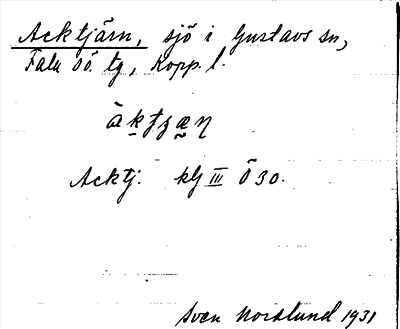 Acktjärn, sjö i Gustavs sn,
Falu sö. tg, Kopp. l.
Acktj. klg III Ö 30.
Sven Norslund 1931